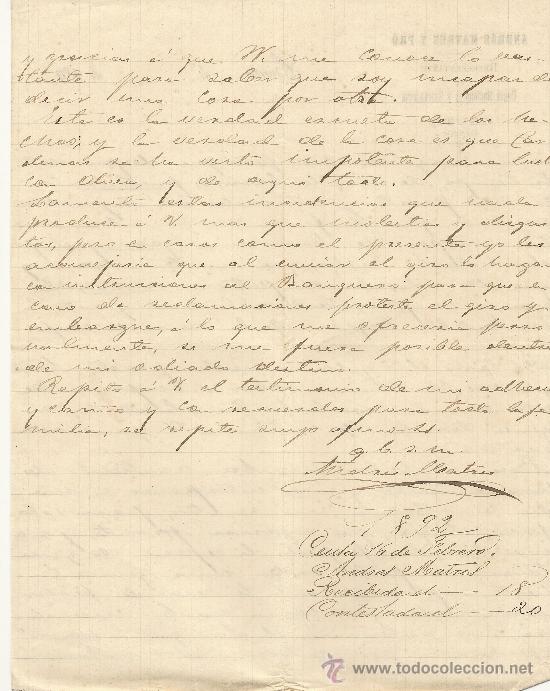 y gracias á que V. me conoce lo bas-
tante para saber que soy incapaz de
decir una cosa por otra.
Esta es la verdad escueta de los he-
chos, y la verdad de la cosa es que
demas se ha visto impotente para
con Olivia, y de aqui todo.
Lamento estas incidencias que nada
produce á V. mas que molestias y disgus-
tos, pero en casos como el presente yo les
aconsejaria que al enviar el giro lo hagan
con instrucciones al Banquero para que en
caso de reclamaciones proteste el giro y
embargue, á lo que me ofreceria perso
nalmente, si me fuera posible dentro
de mi odiado destino.
Repito á V. el testimonio de mi adhesion
y cariño y con recuerdos para toda la fa-
milia, se repite suyo afmo. S.S.
q. b. s. m.
Andrés Matres
1892
Ceuta 14 de Febrero.
Andres Matres
Recibida el — — 18
Contestada el — — 20
ANDRÉS MATRES Y PRO
www.todocoleccion.net